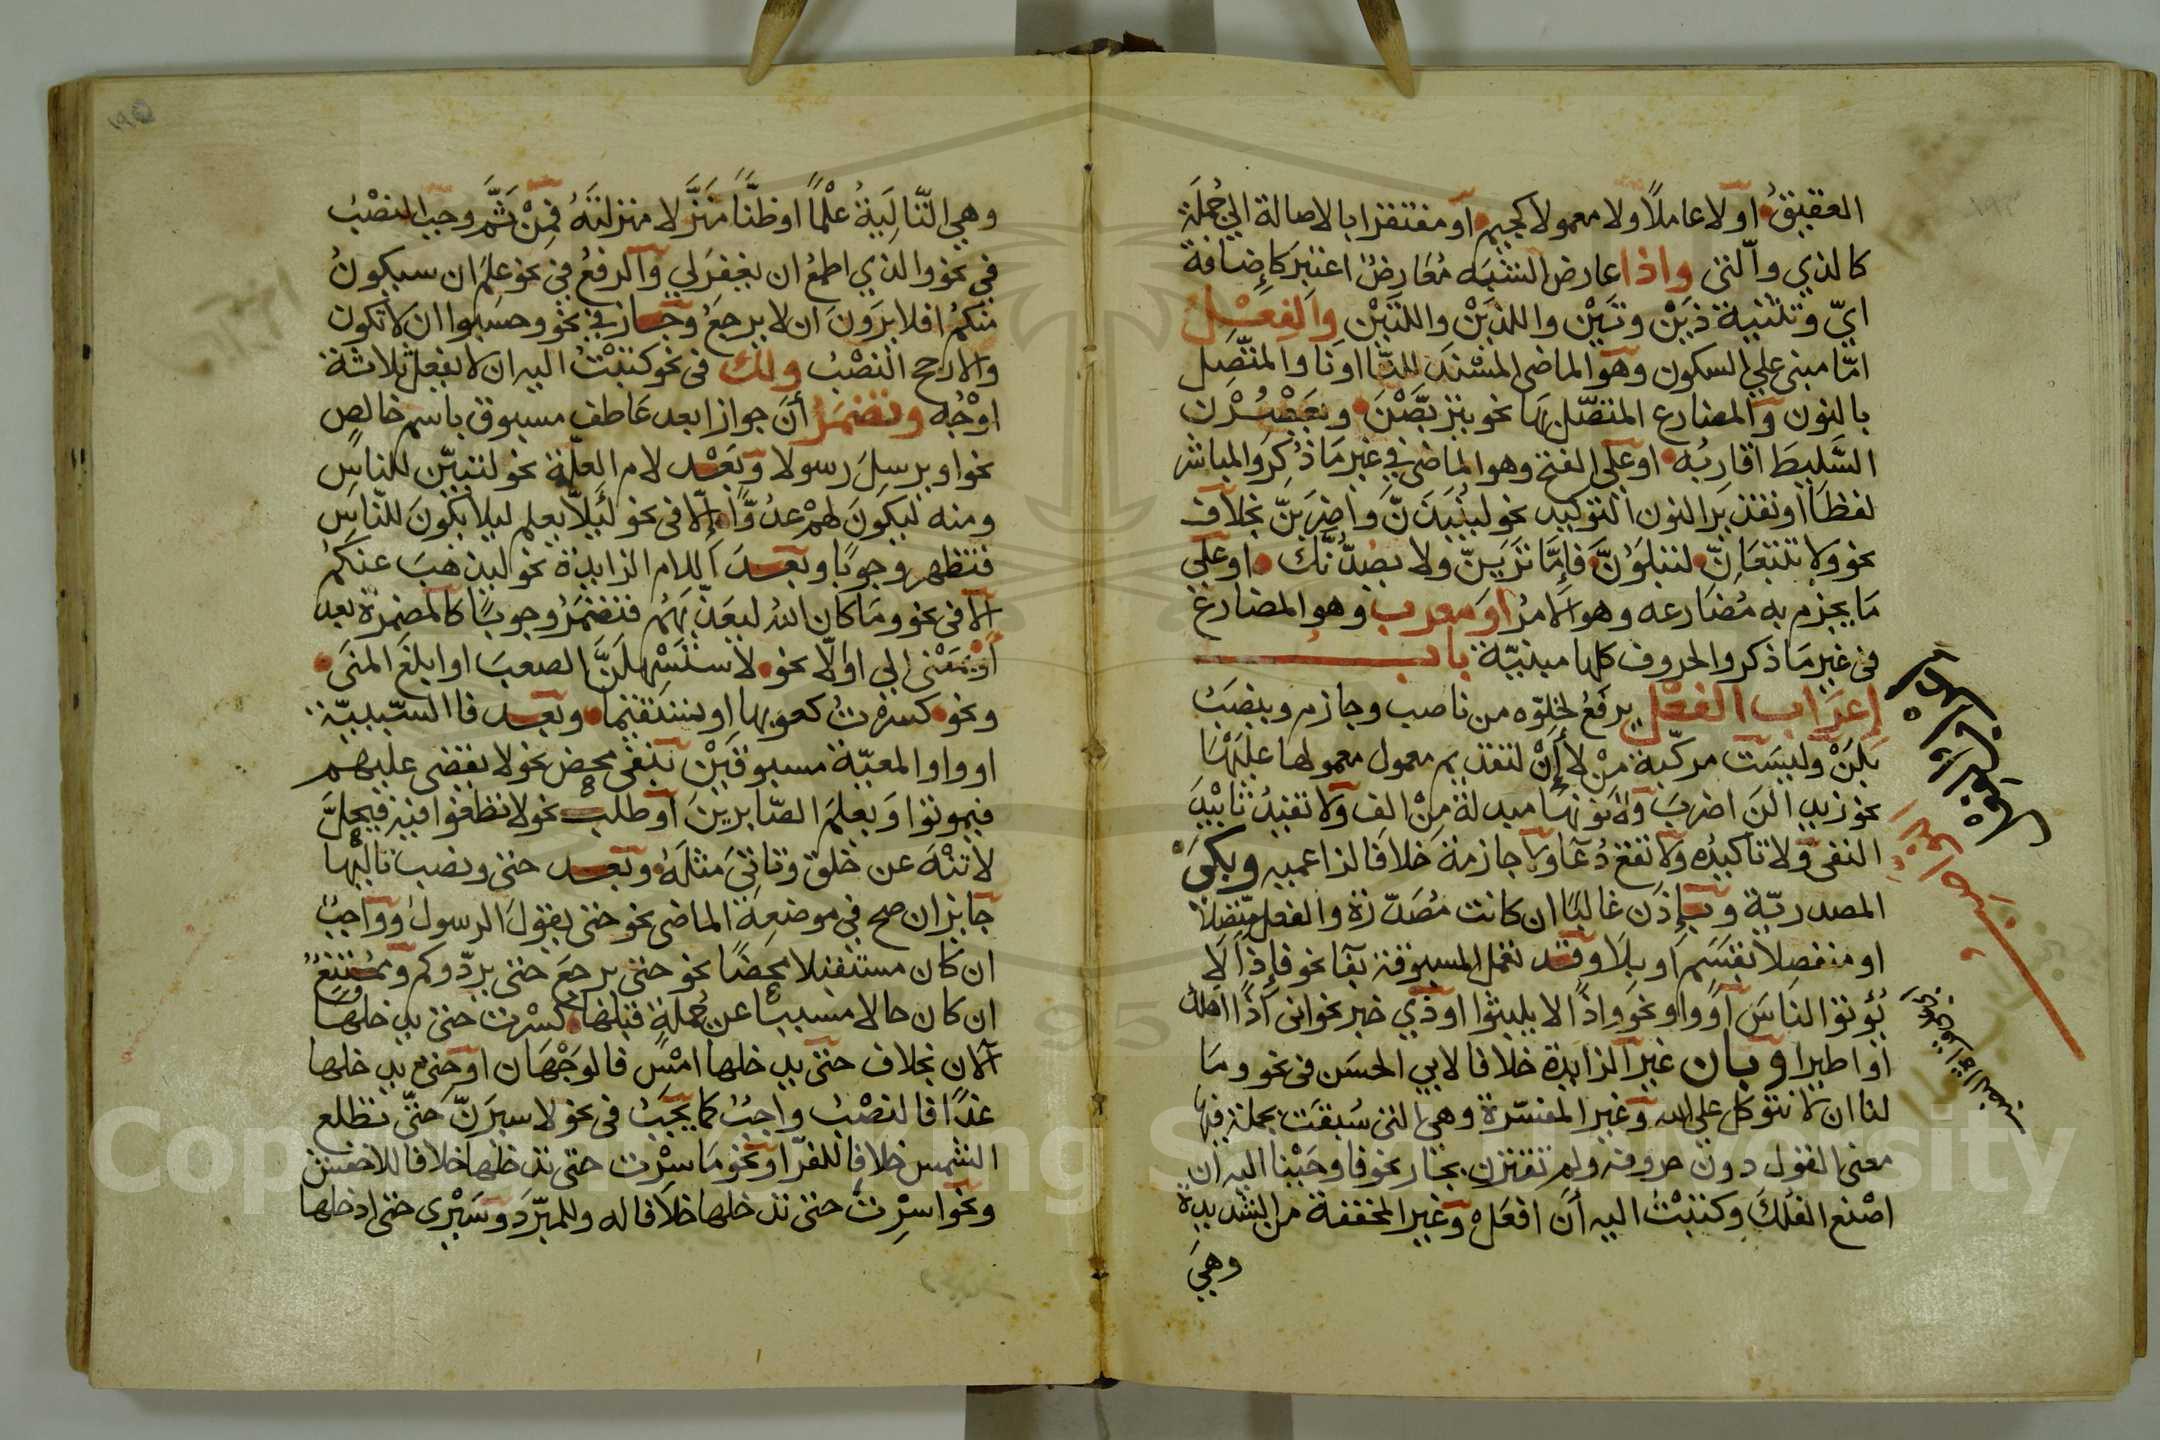 العقيقُ اولا عاملًا ولا معمولا كجيم او مفتقرا بالاصالة الي جُملَة
كالذي والّتى واذا عارض الشبَه مُعَارِضٌ اعتبرَ كَإِضَافة
ايّ وتثنية ذَيْن وتَيْن واللذَيْن واللتَيْن والفِعْل
امّا مبنى علي السكون وهو الماضى المسْنَد للتّا او نَا والمتّصِل
بالنون والمضارع المتصّل بهَا نحو يتربّصْنَ ويَعْصُرْن
السَّلِيطَ اقاربُه او علي الفتح وهو الماضى في غير مَا ذُكِرَ والمباشر
لفظاً او تقديرَ النون التوكيد نحو ليُنْبَذَنَّ وَاضربَنّ بخلاف
نحو ولا تتبعَانِّ لتبلَوُنَّ فإمَّا تَرَيِنّ ولا يصُدُّنَّك او علي
مَا يجزم به مُضَارعه وهو الامرُ او معرب وهو المضارع
فى غير مَا ذكر والحروف كلها مبنيّة باب
إعرَاب الفعْل يرفَعُ لخلوّه من ناصب وجازم وينصَبُ
بَلَنْ وليسَت مركّبة مِنْ لا أَنْ لتقديم معمول معمولها عليْهَا
نحو زيد الَن اضربَ ولا نونها مبدلة مِنْ الف ولا تفيدُ تابيْدَ
النفى ولا تاكيدُه ولا تقع دُعآ ولا جازمة خلافا لزاعميه وبكى
المصدريّة وبإذَن غالبًا ان كانت مُصَدّرَة والفعل متّصلا
او منفصلا بقَسَم او بلَا وقد تهمل المسبوقة بفآ نحو فإذاً لا
يُؤتوا الناسَ او واو نحو واذاً لا يلبثوا او ذي خبر نحوانى اذًا اهلك
او اطيرا وبان غير الزايدة خلافا لابي الحسَن فى نحو ومَا
لنا ان لا نتوكل على الله وغير المفسّرة وهى التى سُبقَت بجملة فيها
معنى القول دون حروفه ولم تقترن بجار نحو فاوحَيْنا اليه ان
اصْنع الفُلكَ وكتبْتُ اليه أنَ افعَلْ وغير المخففة من الشديدة
وهيَ
وهي التّالِيةُ علْماً او ظنّاً مُنَزَّلا منزلتَهُ فمِنْ ثَمَّ وجب النصْبُ
في نحو والذي اطمعُ ان يغفرَ لي والرفعُ فى نحو علمَ ان سيكونُ
منكمُ افلا يَرَوْنَ ان لا يرجعُ وجَاز في نحو وحسبوا ان لا تكون
والارجح النصْبُ ولك فى نحو كتبْتُ اليه ان لا يفعل ثلاثة
اوْجُه وتضمَرُ أنَ جوازا بعد عَاطف مسبوق باسم خالصٍ
نحو او يرسِلَ رسولا وبَعْد لام العلّة نحو لتبيّن للناسِ
ومنه ليكونَ لهمْ عدُوًّا إلّا فى نحو لَيِلّا يعلم ليلا يكونَ للنّاسِ
فتظهر وجوبًا وبعدَ اللام الزايدة نحو ليذهبَ عنكمُ
الا فى نحو ومَا كان اللهُ ليعَذّبَهُم فتضمَرُ وجوبًا كالمضمرة بعد
أو بمَعْنى الى او الّا نحو لاستَسْهلَنَّ الصعبَ او ابلغَ المنَى
ونحو كسرْتُ كعوبها او تستَقيمَا وبعد فا السّببيّة
او واو المعيّة مسبوقَيْن بنفى محض نحو لا يقضى عليهم
فيموتوا وَيعلمَ الصّابرينَ او طلب نحو لا تطغوا فيه فيحلَّ
لا تنْهَ عن خلق وتاتيَ مثلَهُ وبعد حتى ونصب تاليْها
جايز ان صح في موضعِه الماضى نحو حتى يقولَ الرسول وواجبٌ
ان كان مستقبلا محضًا نحو حتى يرجعَ حتى يردّوكم وممتنعٌ
ان كان حالا مسببا عن جُملة قبلها كسرْت حتى يدخلهَا
الآن بخلاف حتى يدخلها امْسِ فالوَجْهَان او حتى يدخلها
غدًا فالنصْبُ واجبٌ كما يجبُ فى نحو لا سيرَنّ حَتّى تطلع
الشمس خلافا للفرّا ونحو مَا سِرْت حتى تدخلها خلافا للاخفش
ونحو اسِرْتَ حتى تدخلها خلافا له وللمبرّدَ وسَيْرى حتى ادخلها